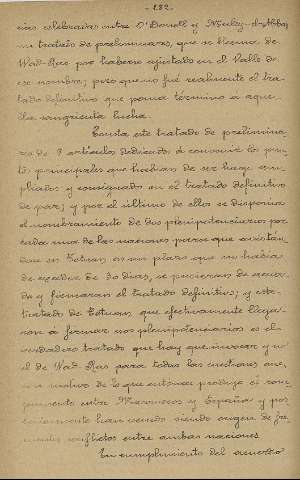 - 182. -
cias celebradas entre O'Donell y Muley-el-Abbas,
un tratado de preliminares, que se llama de
Wad-Ras por haberse ajustado en el Valle de
ese nombre; pero que no fué realmente el tra-
tado definitivo que ponia término á aque-
lla sangrienta lucha.
Consta este tratado de prelimina-
res de 9 artículos dedicados á convenir los pun-
tos principales que habian de ser luego am-
pliados y consignados en el tratado definitivo
de paz; y por el último de ellos se disponia
el nombramiento de dos plenipotenciarios por
cada una de las naciones para que avistán-
dose en Tetuan en un plazo que no habia
de exceder de 30 dias, se pusieran de acuer-
do y firmaran el tratado definitivo; y este
tratado de Tetuan que efectivamente llega-
ron á firmar sus plenipotenciarios es el
verdadero tratado que hay que invocar y no
el de Wad-Ras para todas las cuestiones que,
con motivo de lo que entonces produjo el rom-
pimiento entre Marruecos y España y pos-
teriormente han venido siendo origen de fre-
cuentes conflictos entre ambas naciones.
En cumplimiento del acuerdo